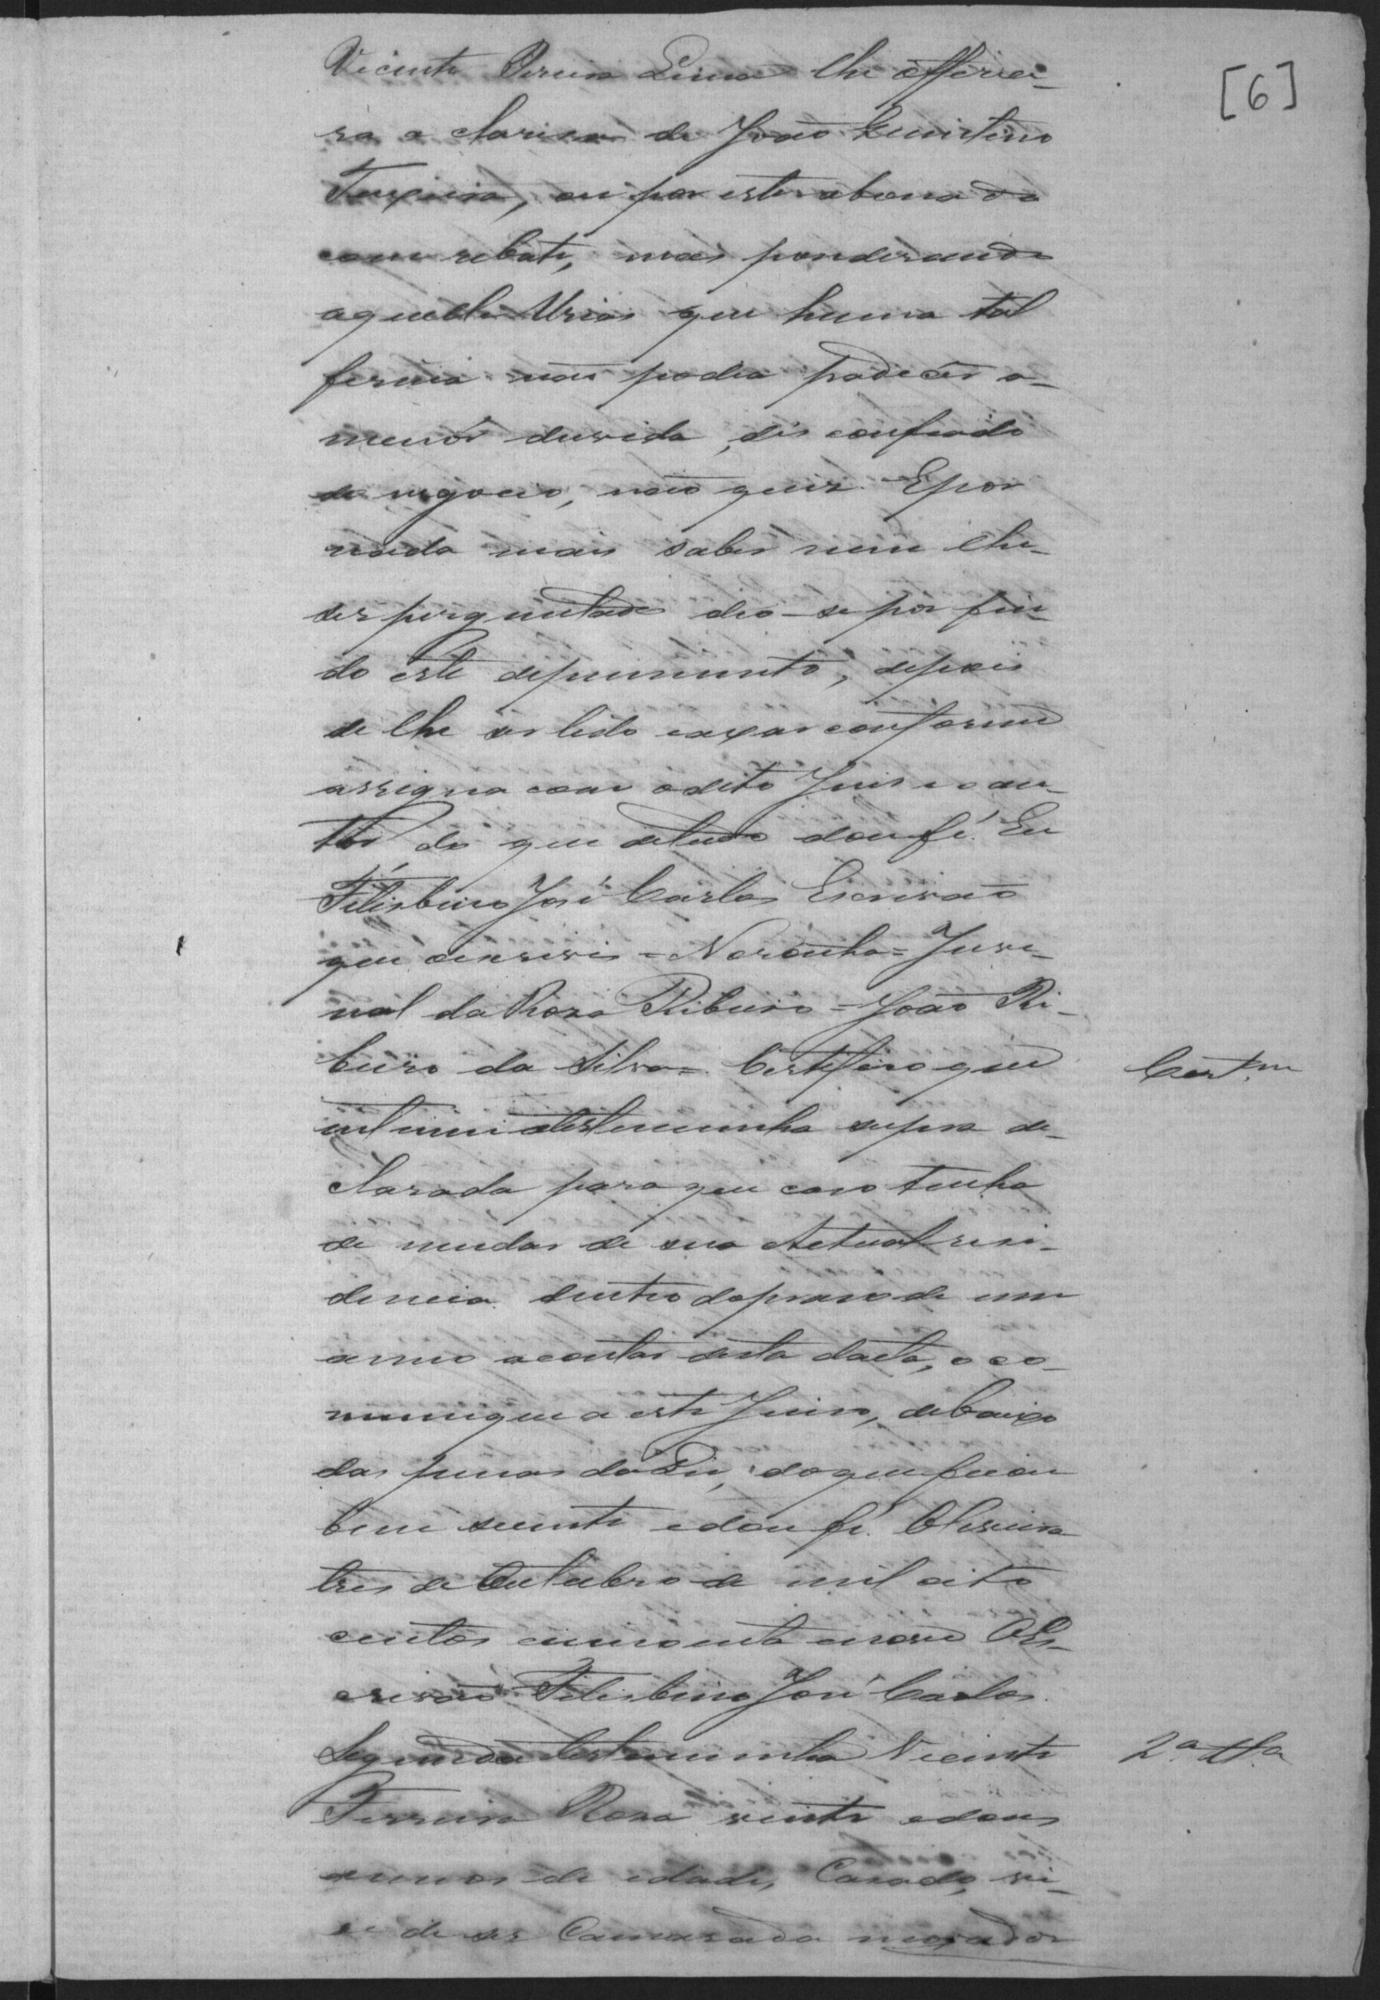 [6]
Vicente Pereira Lima lhe offerece-
ra a clarisa de João Quintino
Teixeira, ou por estar abonada
com rebate, mas ponderando
aquelle Urias que huma tal
firma não podia padecer a-
menor duvida, disconfiado
do negocio, não quis. E por
nada mais saber nem lhe-
ser perguntado deo-se por fin-
do este depuimento, depois
de lhe ser lido e axar conforme
assigna com o dito Juis e o au-
tor do que de tudo dou fé. Eu
Felisbino José Carlos Escrivão
que o escrevi = Noronha = Juve-
nal da Roza Ribeiro = João Ri-
beiro da Silva = Certifico que
intimei a testemunha supra de-
clarada para que caso tenha
de mudar de sua Actual resi-
dencia dentro do praso de um
anno a contar desta dacta, o co-
munique a este Juiso, debaixo
das penas da Lei, do que ficou
bem sciente e dou fé. Oliveira
tres de Outubro de mil oito
centos cincoenta e nove O Es-
crivão Felisbino José Carlos.
Segunda testemunha Vicente
Ferreira Roza vinte e dous
annos de idade, Casado, vi-
ve de ser Camarada morador
Cert.m
2.a tt.a